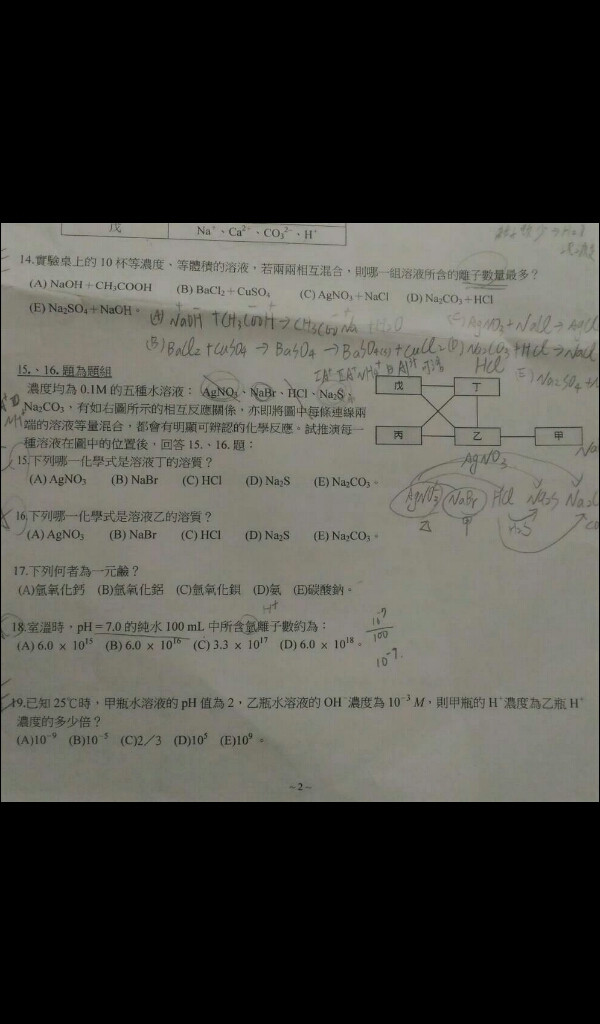 戊
Na⁺、Ca²⁺、CO₃²⁻、H⁺
14.實驗桌上的 10 杯等濃度、等體積的溶液，若兩兩相互混合，則哪一組溶液所含的離子數量最多？
(A) NaOH＋CH₃COOH (B) BaCl₂＋CuSO₄ (C) AgNO₃＋NaCl (D) Na₂CO₃＋HCl
(E) Na₂SO₄＋NaOH。
(A) NaOH + CH₃COOH → CH₃COONa + H₂O
(C) AgNO₃ + NaCl → AgCl
(B) BaCl₂ + CuSO₄ → BaSO₄ → BaSO₄(s) + CuCl₂ (D) Na₂CO₃ + HCl → NaCl
E) Na₂SO₄ +
15.、16. 題為題組
濃度均為 0.1M 的五種水溶液： AgNO₃、NaBr、HCl、Na₂S、
Na₂CO₃，有如右圖所示的相互反應關係，亦即將圖中每條連線兩
端的溶液等量混合，都會有明顯可辨認的化學反應。試推演每一
種溶液在圖中的位置後，回答 15.、16. 題：
HCl
戊 丁
丙 乙 甲
AgNO₃
15.下列哪一化學式是溶液丁的溶質？
(A) AgNO₃ (B) NaBr (C) HCl (D) Na₂S (E) Na₂CO₃。
AgNO₃ NaBr HCl Na₂S Na₂C
乙 甲
16.下列哪一化學式是溶液乙的溶質？
(A) AgNO₃ (B) NaBr (C) HCl (D) Na₂S (E) Na₂CO₃。
17.下列何者為一元鹼？
(A)氫氧化鈣 (B)氫氧化鋁 (C)氫氧化鋇 (D)氨 (E)碳酸鈉。
H⁺
18.室溫時，pH＝7.0 的純水 100 mL 中所含氫離子數約為：
(A) 6.0 × 10¹⁵ (B) 6.0 × 10¹⁶ (C) 3.3 × 10¹⁷ (D) 6.0 × 10¹⁸。
10⁻⁷
100
10⁻⁷.
19.已知 25℃時，甲瓶水溶液的 pH 值為 2，乙瓶水溶液的 OH⁻濃度為 10⁻³ M，則甲瓶的 H⁺濃度為乙瓶 H⁺
濃度的多少倍？
(A)10⁻⁹ (B)10⁻⁵ (C)2／3 (D)10⁵ (E)10⁹。
~2~